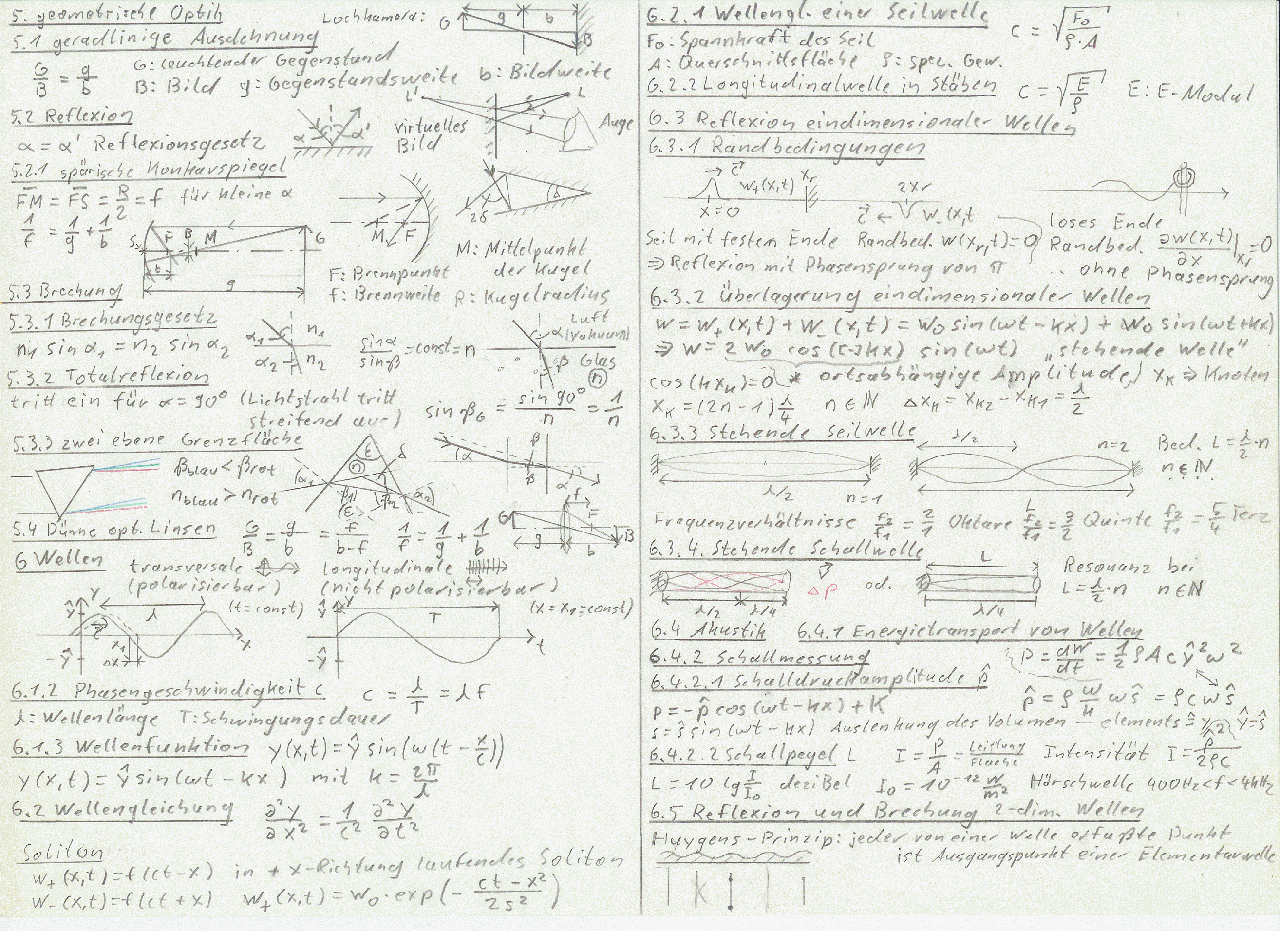 5. geometrische Optik
Lochkamera: G g b B
5.1 geradlinige Ausdehnung
G/B = g/b G: leuchtender Gegenstand
B: Bild g: Gegenstandsweite b: Bildweite
5.2 Reflexion
α = α' Reflexionsgesetz
virtuelles Bild
L' L Auge
5.2.1 spärische Konkavspiegel
FM = FS = R/2 = f für kleine α
1/f = 1/g + 1/b
M: Mittelpunkt der Kugel
F: Brennpunkt
f: Brennweite R: Kugelradius
5.3 Brechung
5.3.1 Brechungsgesetz
n₁ sin α₁ = n₂ sin α₂
sinα/sinβ = const = n
Luft (Vakuum)
Glas
n
5.3.2 Totalreflexion
tritt ein für α = 90° (Lichtstrahl tritt
streifend aus)
sin β_G = sin 90°/n = 1/n
5.3.3 zwei ebene Grenzfläche
β_blau < β_rot
n_blau > n_rot
5.4 Dünne opt. Linsen G/B = g/b = f/(b-f) 1/f = 1/g + 1/b
6 Wellen transversale longitudinale
(polarisierbar) (nicht polarisierbar)
(t = const) (x = x₁ = const)
6.1.2 Phasengeschwindigkeit c c = λ/T = λ f
λ = Wellenlänge T: Schwingungsdauer
6.1.3 Wellenfunktion y(x,t) = ŷ sin(ω(t - x/c))
y(x,t) = ŷ sin(ωt - kx) mit k = 2π/λ
6.2 Wellengleichung ∂²y/∂x² = 1/c² ∂²y/∂t²
Soliton
w₊(x,t) = f(ct - x) in + x-Richtung laufendes Soliton
w₋(x,t) = f(ct + x) w₊(x,t) = w₀ · exp(- (ct - x²)/2s²)
6.2.1 Wellengl. einer Seilwelle c = √(F₀/(ρ·A))
F₀: Spannkraft des Seil
A: Querschnittsfläche ρ: spez. Gew.
6.2.2 Longitudinalwelle in Stäben c = √(E/ρ) E: E-Modul
6.3 Reflexion eindimensionaler Wellen
6.3.1 Randbedingungen
c w₊(x,t) x_r 2x_r
x=0 c ← w₋(x,t
loses Ende
Seil mit festem Ende Randbed. w(x_r,t) = 0 Randbed. ∂w(x,t)/∂x |x_r = 0
⇒ Reflexion mit Phasensprung von π .. ohne Phasensprung
6.3.2 Überlagerung eindimensionaler Wellen
w = w₊(x,t) + w₋(x,t) = w₀ sin(ωt - kx) + w₀ sin(ωt + kx)
⇒ w = 2w₀ cos([-]kx) sin(ωt) „stehende Welle"
cos(kx_K) = 0 * ortsabhängige Amplitude) x_K ⇒ Knoten
x_K = (2n-1) λ/4 n∈ℕ Δx_K = x_K2 - x_K1 = λ/2
6.3.3 Stehende Seilwelle
λ/2 n=2 Bed. L = λ/2 · n
n∈ℕ
λ/2 n=1 L
Frequenzverhältnisse f₂/f₁ = 2/1 Oktave f₂/f₁ = 3/2 Quinte f₂/f₁ = 5/4 Terz
6.3.4. Stehende Schallwelle
Δp od. L Resonanz bei
L = λ/2 · n n∈ℕ
λ/2 λ/4 λ/4
6.4 Akustik 6.4.1 Energietransport von Wellen
6.4.2 Schallmessung P = dW/dt = 1/2 ρ A c ŷ² ω²
6.4.2.1 Schalldruckamplitude p̂
p = -p̂ cos(ωt - kx) + K p̂ = ρ ω/k ω ŝ = ρ c ω ŝ
s = ŝ sin(ωt - kx) Auslenkung des Volumen - elements ŷ = ŝ
6.4.2.2 Schallpegel L I = P/A = Leistung/Fläche Intensität I = p̂/2ρc
L = 10 lg I/I₀ dezibel I₀ = 10⁻¹² W/m² Hörschwelle 400Hz < f < 4kHz
6.5 Reflexion und Brechung 2-dim. Wellen
Huygens-Prinzip: jeder von einer Welle erfaßte Punkt
ist Ausgangspunkt einer Elementarwelle